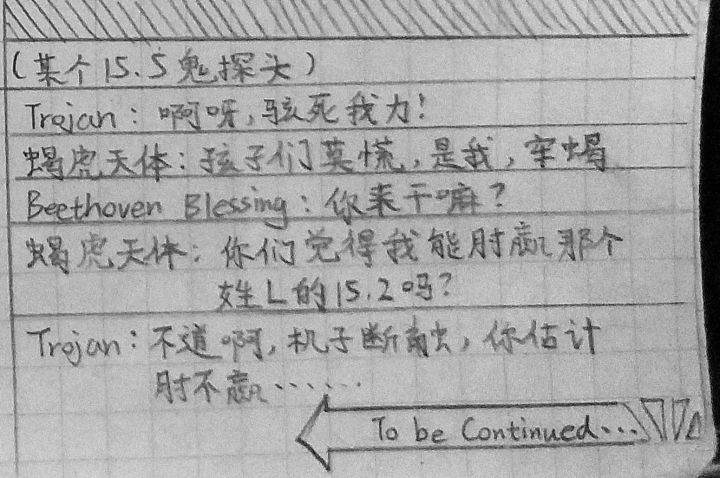 (某个15.5鬼探头)
Trojan：啊呀,骇死我力！
蝎虎天体：孩子们莫慌,是我,牢蝎
Beethoven Blessing：你来干嘛？
蝎虎天体：你们觉得我能肘赢那个
姓L的15.2吗？
Trojan：不道啊,机子断触,你估计
肘不赢……
To be Continued...